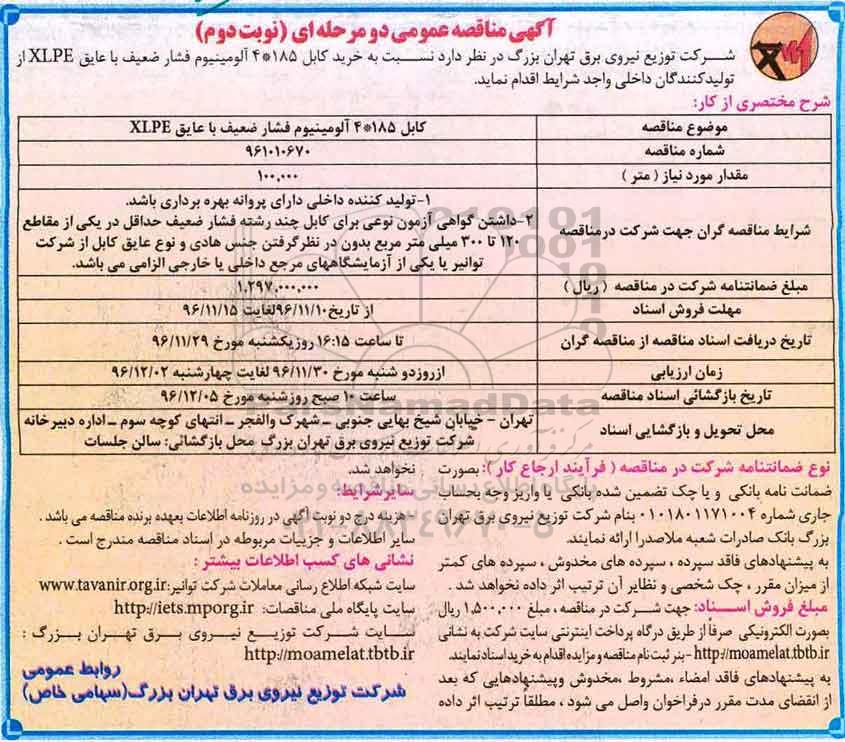 آگهی مناقصه عمومی دو مرحله ای (نوبت دوم)
شرکت توزیع نیروی برق تهران بزرگ در نظر دارد نسبت به خرید کابل ۱۸۵*۴ آلومینیوم فشار ضعیف با عایق XLPE از
تولیدکنندگان داخلی واجد شرایط اقدام نماید.
شرح مختصری از کار:
موضوع مناقصه کابل ۱۸۵*۴ آلومینیوم فشار ضعیف با عایق XLPE
شماره مناقصه ۹۶۱۰۱۰۶۷۰
مقدار مورد نیاز ( متر ) ۱۰۰,۰۰۰
شرایط مناقصه گران جهت شرکت درمناقصه
۱-تولید کننده داخلی دارای پروانه بهره برداری باشد.
۲-داشتن گواهی آزمون نوعی برای کابل چند رشته فشار ضعیف حداقل در یکی از مقاطع
۱۲۰ تا ۳۰۰ میلی متر مربع بدون در نظرگرفتن جنس هادی و نوع عایق کابل از شرکت
توانیر یا یکی از آزمایشگاههای مرجع داخلی یا خارجی الزامی می باشد.
مبلغ ضمانتنامه شرکت در مناقصه ( ریال ) ۱,۲۹۷,۰۰۰,۰۰۰
مهلت فروش اسناد از تاریخ۹۶/۱۱/۱۰لغایت ۹۶/۱۱/۱۵
تاریخ دریافت اسناد مناقصه از مناقصه گران تا ساعت ۱۶:۱۵ روزیکشنبه مورخ ۹۶/۱۱/۲۹
زمان ارزیابی ازروزدو شنبه مورخ ۹۶/۱۱/۳۰ لغایت چهارشنبه ۹۶/۱۲/۰۲
تاریخ بازگشائی اسناد مناقصه ساعت ۱۰ صبح روزشنبه مورخ ۹۶/۱۲/۰۵
محل تحویل و بازگشایی اسناد
تهران - خیابان شیخ بهایی جنوبی - شهرک والفجر - انتهای کوچه سوم - اداره دبیرخانه
شرکت توزیع نیروی برق تهران بزرگ محل بازگشائی: سالن جلسات
نوع ضمانتنامه شرکت در مناقصه ( فرآیند ارجاع کار ): بصورت
ضمانت نامه بانکی و یا چک تضمین شده بانکی یا واریز وجه بحساب
جاری شماره ۰۱۰۱۸۰۱۱۷۱۰۰۴ بنام شرکت توزیع نیروی برق تهران
بزرگ بانک صادرات شعبه ملاصدرا ارائه نمایند.
به پیشنهادهای فاقد سپرده ، سپرده های مخدوش ، سپرده های کمتر
از میزان مقرر ، چک شخصی و نظایر آن ترتیب اثر داده نخواهد شد .
مبلغ فروش اسناد: جهت شرکت در مناقصه ، مبلغ ۱,۵۰۰,۰۰۰ ریال
بصورت الکترونیکی صرفاً از طریق درگاه پرداخت اینترنتی سایت شرکت به نشانی
http://moamelat.tbtb.ir - بنر ثبت نام مناقصه و مزایده اقدام به خرید اسناد نمایند.
به پیشنهادهای فاقد امضاء ،مشروط ،مخدوش وپیشنهادهایی که بعد
از انقضای مدت مقرر درفراخوان واصل می شود ، مطلقاً ترتیب اثر داده
نخواهد شد.
سایرشرایط:
هزینه درج دو نوبت آگهی در روزنامه اطلاعات بعهده برنده مناقصه می باشد .
سایر اطلاعات و جزییات مربوطه در اسناد مناقصه مندرج است .
نشانی های کسب اطلاعات بیشتر :
سایت شبکه اطلاع رسانی معاملات شرکت توانیر:www.tavanir.org.ir
سایت پایگاه ملی مناقصات: http://iets.mporg.ir
سایت شرکت توزیع نیروی برق تهران بزرگ :
http://moamelat.tbtb.ir
روابط عمومی
شرکت توزیع نیروی برق تهران بزرگ(سهامی خاص)
ParsNamadData
پایگاه اطلاع رسانی مناقصه و مزایده